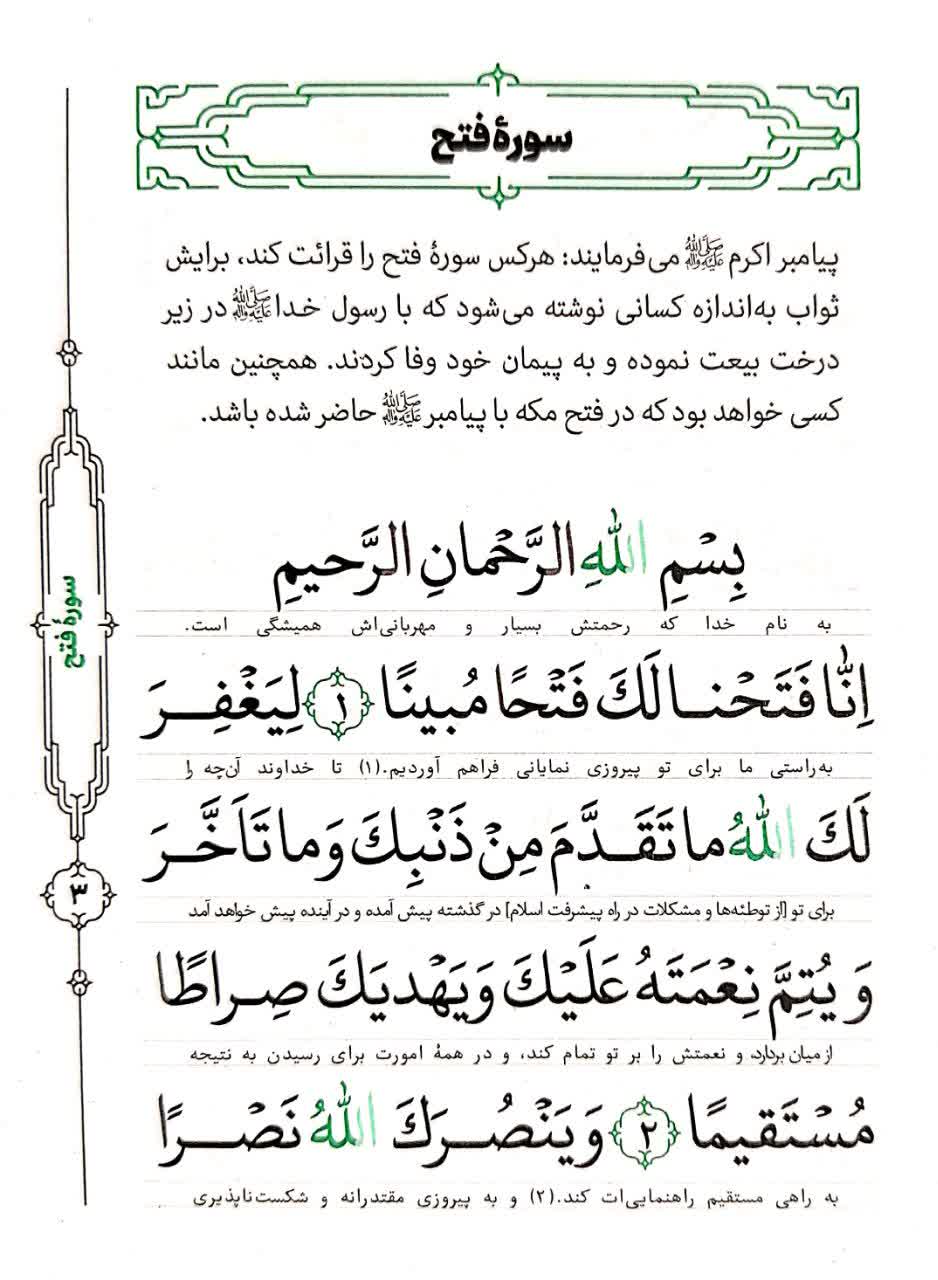 سورهٔ فتح
پیامبر اکرم ﷺ می‌فرمایند: هرکس سورهٔ فتح را قرائت کند، برایش
ثواب به‌اندازه کسانی نوشته می‌شود که با رسول خدا ﷺ در زیر
درخت بیعت نموده و به پیمان خود وفا کردند. همچنین مانند
کسی خواهد بود که در فتح مکه با پیامبر ﷺ حاضر شده باشد.
بِسْمِ اللّٰهِ الرَّحْمانِ الرَّحیمِ
به نام خدا که رحمتش بسیار و مهربانی‌اش همیشگی است.
اِنّا فَتَحْنا لَكَ فَتْحًا مُبینًا ۱ لِیَغْفِرَ
به‌راستی ما برای تو پیروزی نمایانی فراهم آوردیم.(۱) تا خداوند آن‌چه را
لَكَ اللّٰهُ ما تَقَدَّمَ مِنْ ذَنْبِكَ وَ ما تَاَخَّرَ
برای تو [از توطئه‌ها و مشکلات در راه پیشرفت اسلام] در گذشته پیش آمده و در آینده پیش خواهد آمد
وَ یُتِمَّ نِعْمَتَهُ عَلَیْكَ وَ یَهْدِیَكَ صِراطًا
از میان بردارد، و نعمتش را بر تو تمام کند، و در همهٔ امورت برای رسیدن به نتیجه
مُسْتَقیمًا ۲ وَ یَنْصُرَكَ اللّٰهُ نَصْرًا
به راهی مستقیم راهنمایی‌ات کند.(۲) و به پیروزی مقتدرانه و شکست‌ناپذیری
سورهٔ فتح
۳